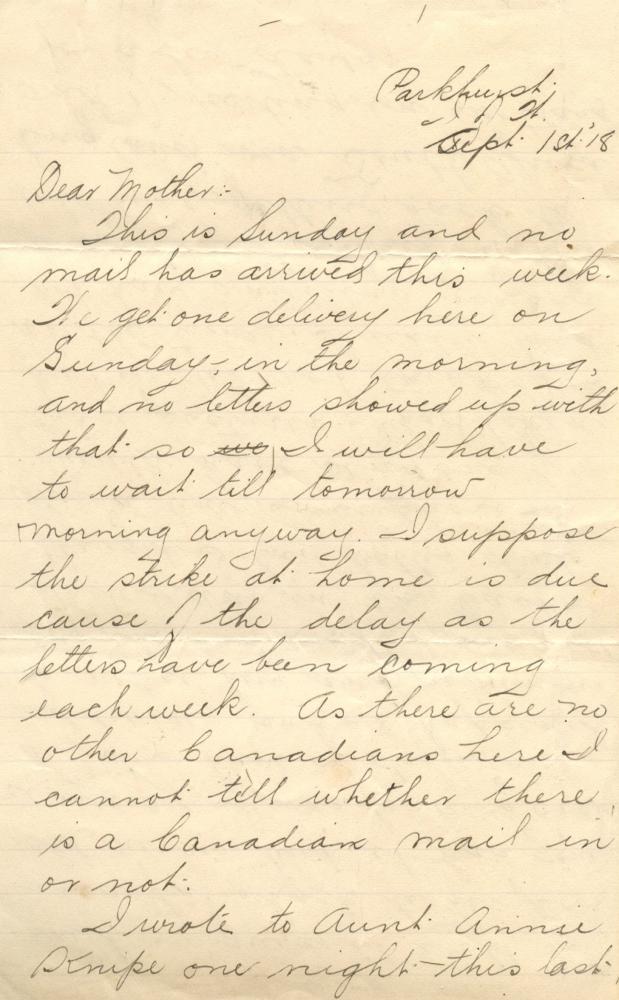 Parkhurst
I of W.
Sept. 1st. '18
Dear Mother:-
This is Sunday and no
mail has arrived this week.
We get one delivery here on
Sunday, in the morning,
and no letters showed up with
that so we I will have
to wait till tomorrow
morning anyway. I suppose
the strike at home is due
cause of the delay as the
letters have been coming
each week. As there are no
other Canadians here I
cannot tell whether there
is a Canadian mail in
or not.
I wrote to Aunt Annie
Knipe one night this last